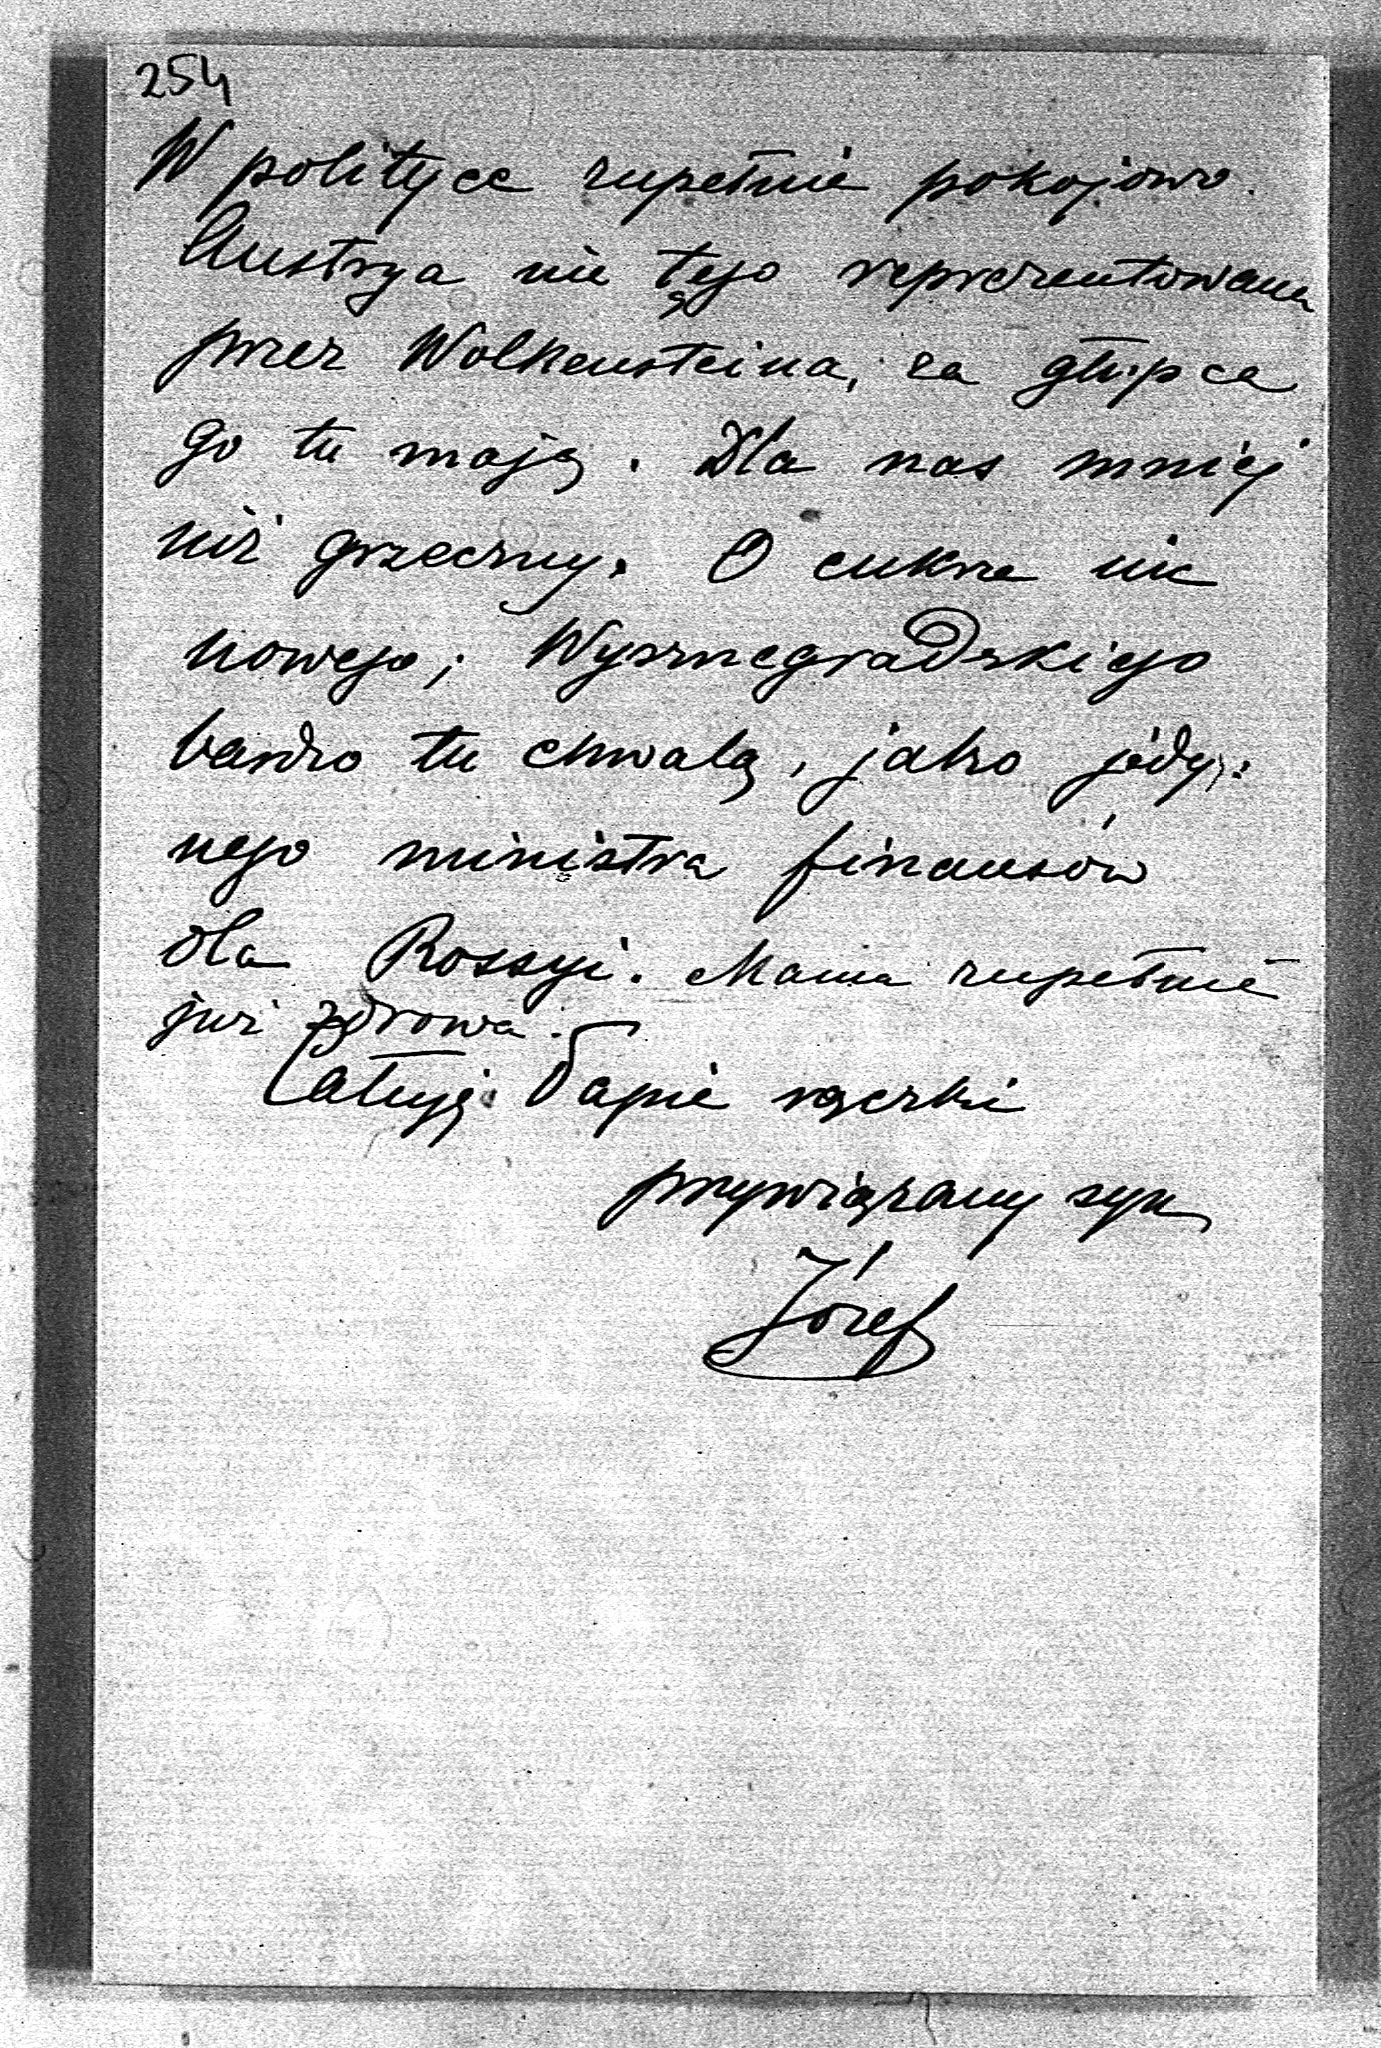 254
W polityce zupełnie pokojowo.
Austrya nie tęgo reprezentowana
przez Wolkensteina, za głupca
go tu mają. Dla nas mniej
niż grzeczny. O cukrze nic
nowego; Wysznegradskiego
bardzo tu chwalą, jako jedy:
nego ministra finansów
dla Rossyi. Mama zupełnie
już zdrowa.
Całuję Papie rączki
przywiązany syn
Józef